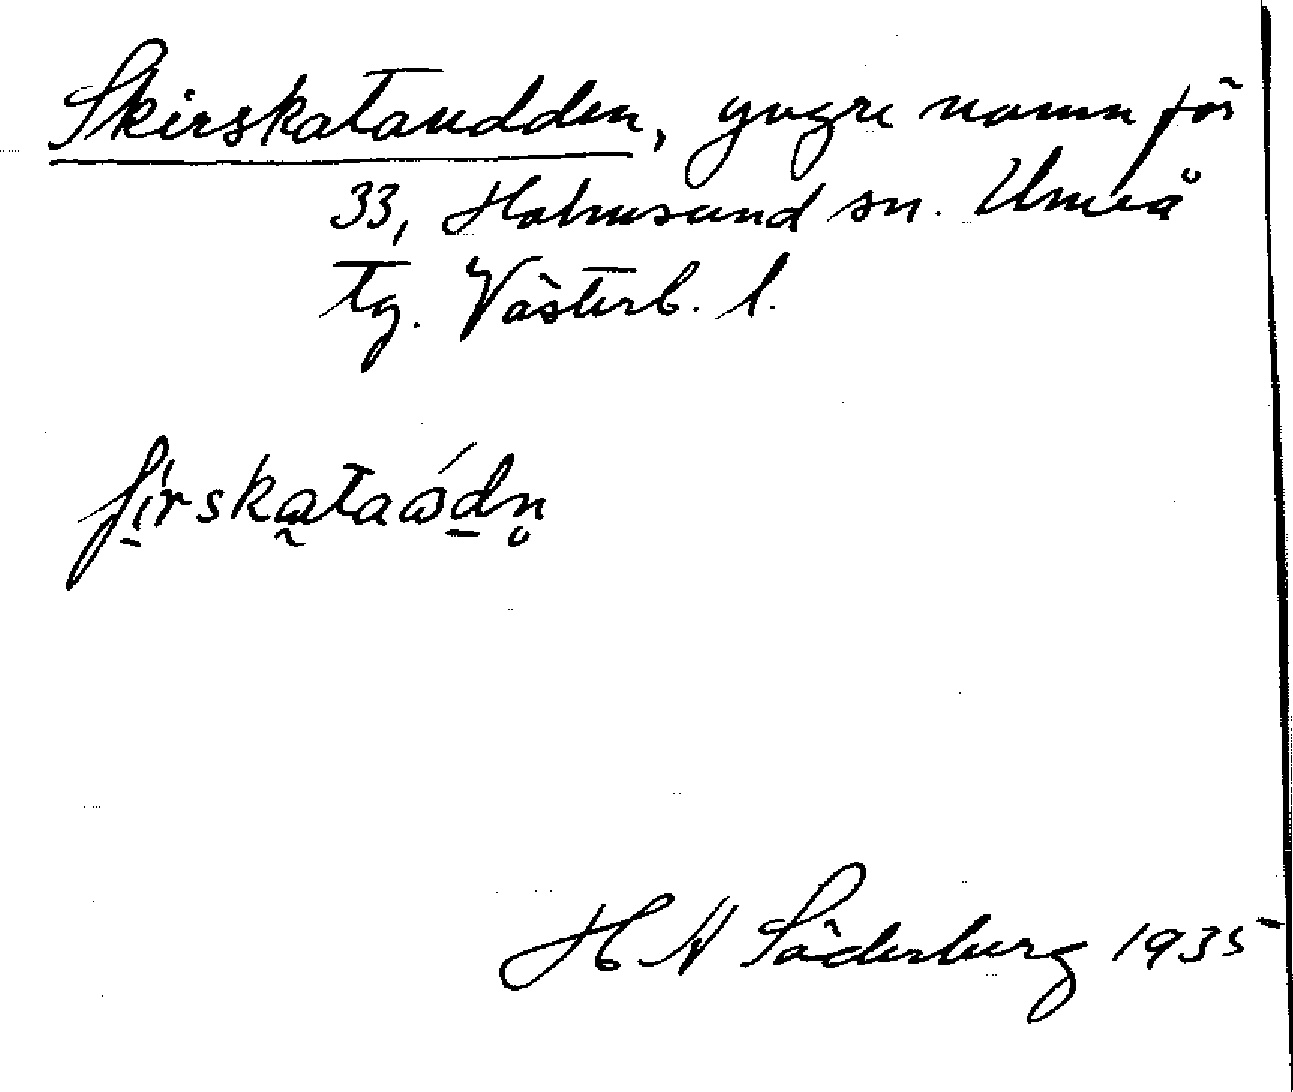 Skirskataudden, yngre namn för
33, Holmsund sn. Umeå
tg. Västerb. l.
ʃi̱rska̰taωd̲n̥
H N Söderberg 1935